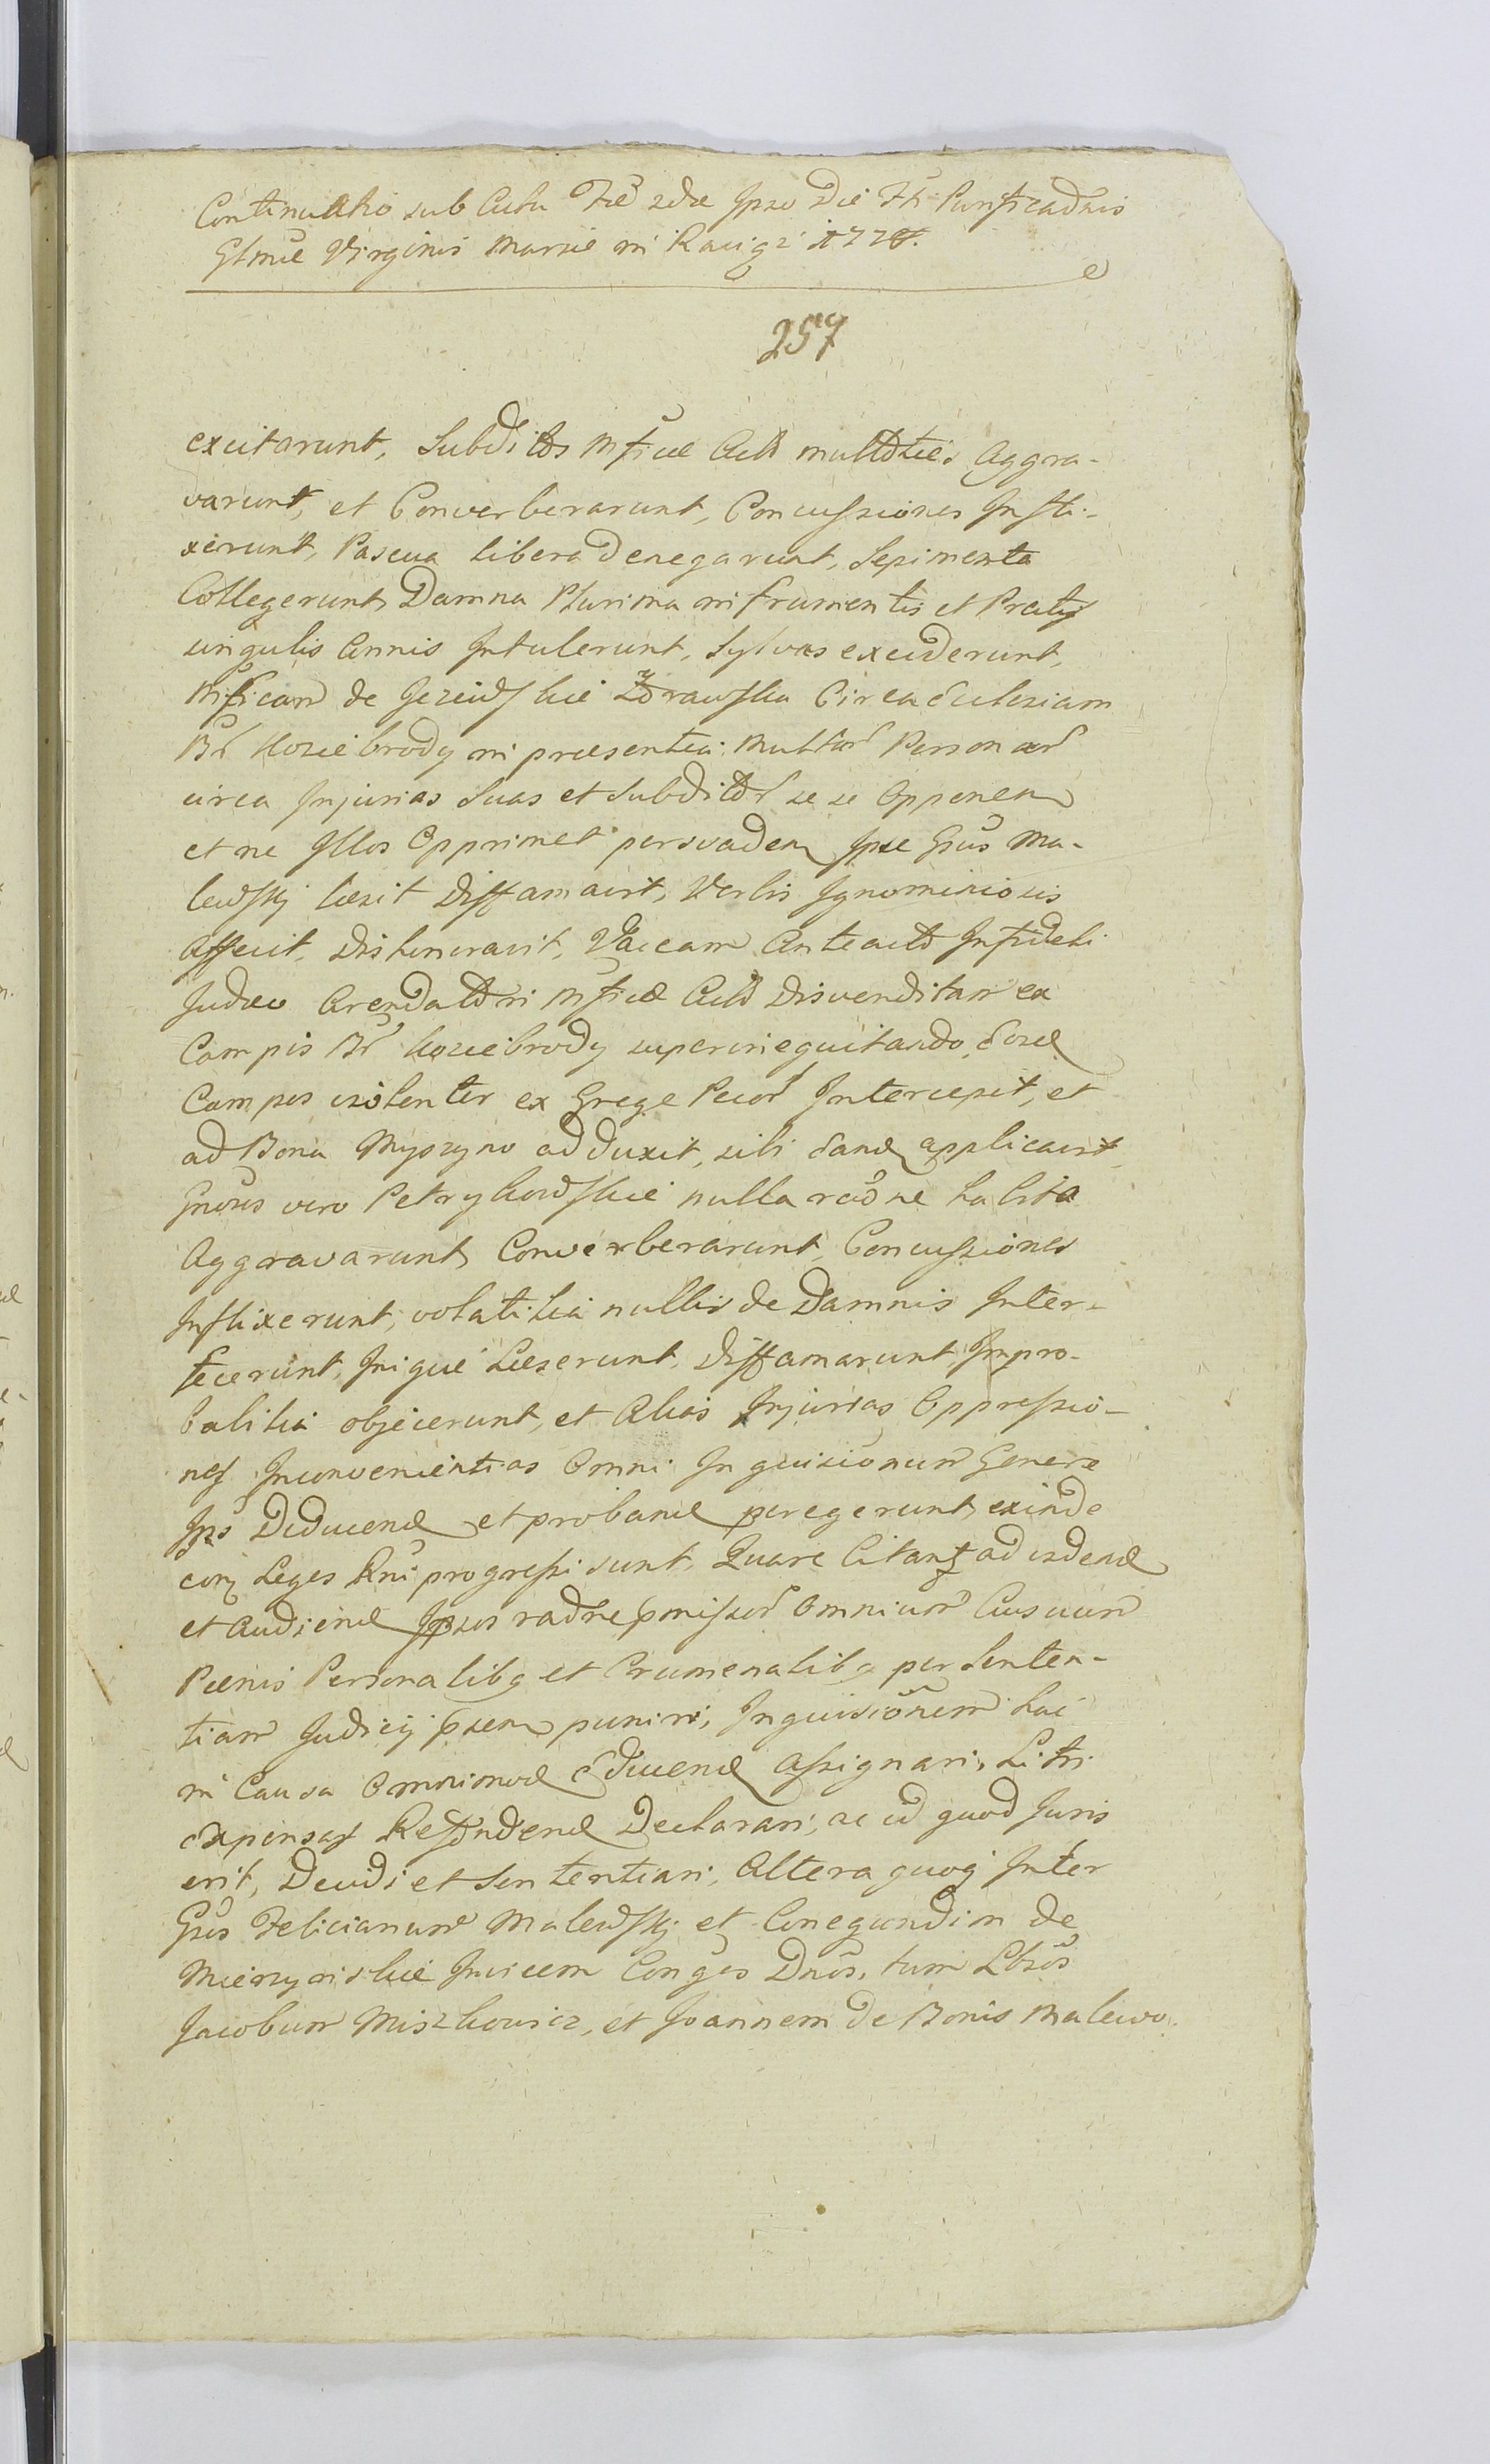 Continuatio sub Actu Fie 2dæ Ipso Die Fti Purificaonis
Glmæ Virginis Mariæ in Raciąz 177
257
excitarunt, Subditos Mficæ Act multoties Aggra-
varunt, et Converberarunt, Concussiones Infli-
xerunt, Pascua libera Denegarunt, Sepimenta
Collegerunt, Damna Plurima in frumentis et Pratis
singulis Annis Intulerunt, Sylvas exciderunt,
Mficam de Jezewskie Zdrawska Circa Ecclesiam
Br Koziebrody in præsentia Multar Personar
circa Injurias Suas et Subditor se se Opponen
et ne Illos Opprimet persvaden Ipse Gsus Ma-
lewskj læsit Diffamavit, Verbis Ignominiosis
Affecit, Dishonoravit, Vaccam Anteacto Infideli
Judæo Arendatori Mficæ Act Disvenditam ex
Campis Br Koziebrody superinequitando Eosd
Campos violenter ex Grege Pecor Intercepit, et
ad Bona Myszyno adduxit, sibi Eand applicavit
Gnosus vero Petrykowskie nulla raone habita
Aggravarunt Converberarunt, Concussiones
Inflixerunt, volatilia nullis de Damnis Inter-
fecerunt, Inique Læserunt, Diffamarunt, Impro-
balilia objecerunt, et Alias Injurias Oppressio-
nes Inconvenientias Omni Inquisionum Genere
Ips Deducend et proband peregerunt exinde
conq Leges Rni progressi sunt, Quare Citant ad viden
et Audiend Ipsos raone pmissor Omnium Casuum
Pœnis Personalibq et Crumenalibq per Senten-
tiam Judicij psen puniri, Inquisionem hac
in Causa Omnimod Educend Assignari, Litri
Expensas Refundend Declarari, ac id quod Juris
erit, Decidi et Sententiari, Altera quoq Inter
Gsos Felicianum Malewskj et Cunegundim de
Mierzynskie Invicem Conges Dnos, tum Lbsos
Jacobum Miszkowicz, et Joannem de Bonis Malewo